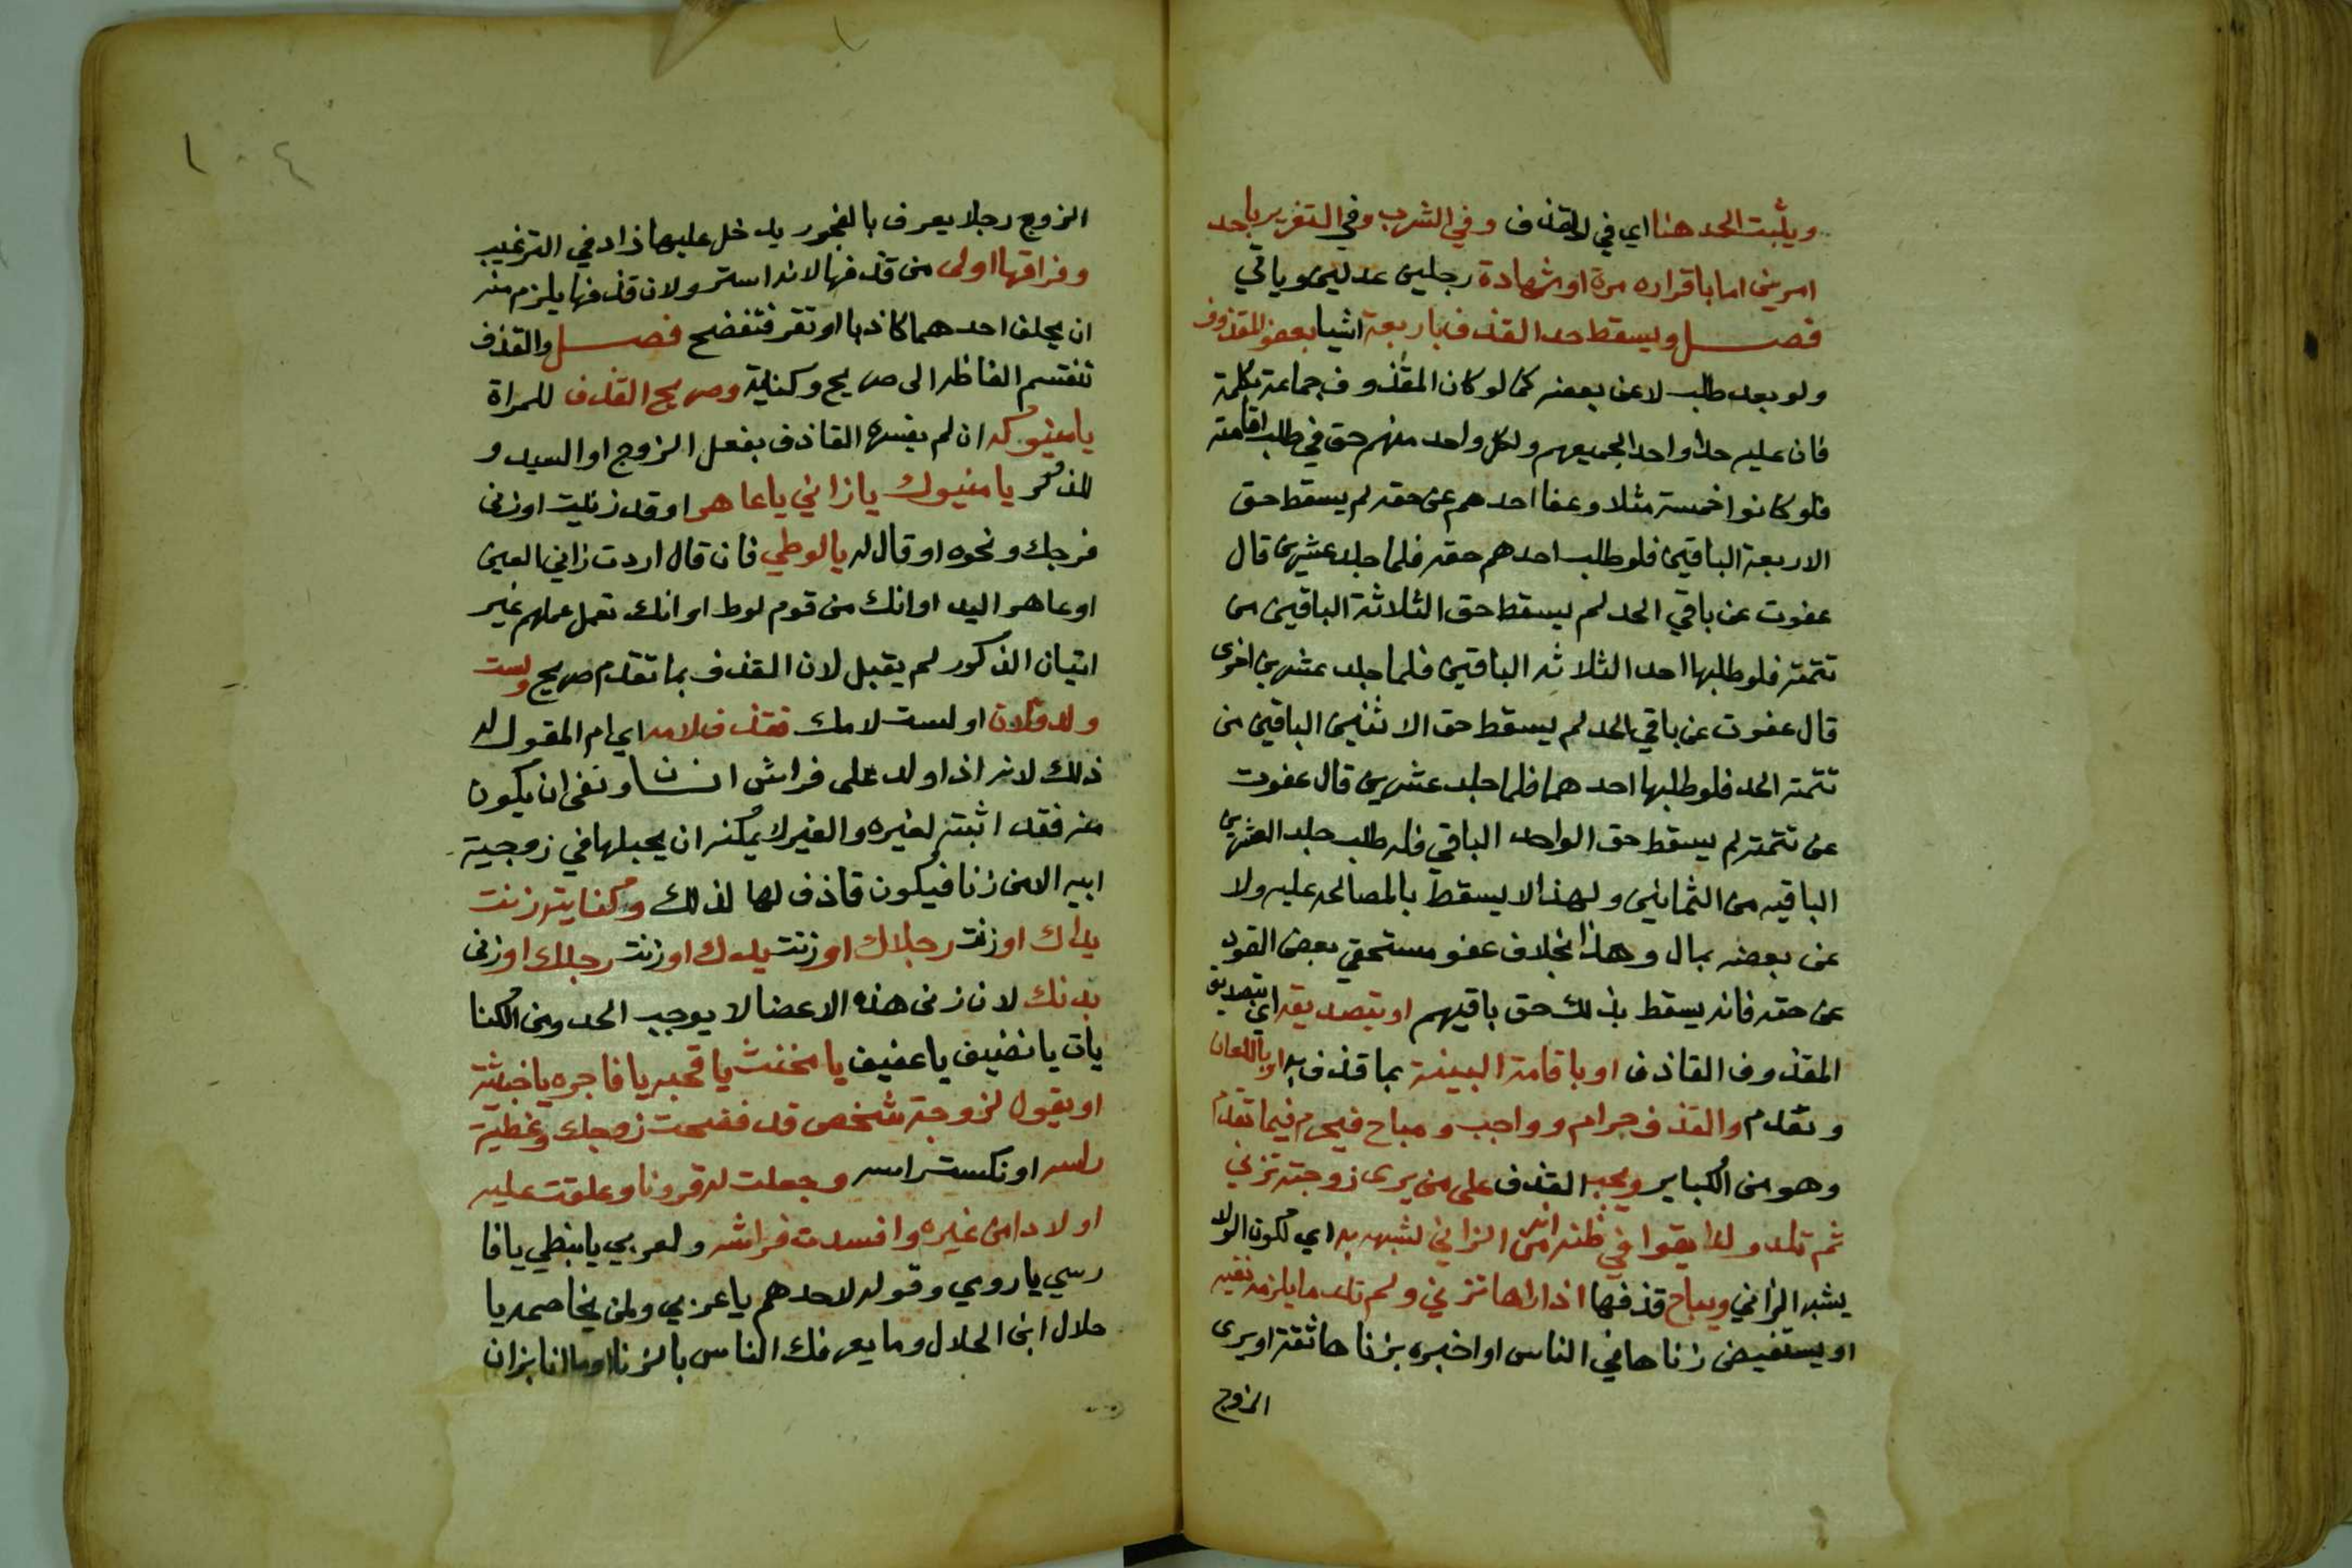 ويثبت الحد هنا اي في القذف وفي الشرب وفي التعزير باحد
امرين اما باقراره مرة او شهادة رجلين عدلين وياتي
فصل ويسقط حد القذف باربعة اشيا بعفو المقذوف
ولو بعد طلب لا عن بعضه كما لو كان المقذوف جماعة بكلمة
فان عليه حدا واحدا لجميعهم ولكل واحد منهم حق في طلب اقامته
فلو كانوا خمسة مثلا وعفا احدهم عن حقه لم يسقط حق
الاربعة الباقين فلو طلب احدهم حقه فلما جلد عشرين قال
عفوت عن باقي الحد لم يسقط حق الثلاثة الباقين من
تتمته فلو طلبها احد الثلاثه الباقين فلما جلد عشرين اخرى
قال عفوت عن باقي الحد لم يسقط حق الاثنين الباقين من
تتمة الحد فلو طلبها احدهما فلما جلد عشرين قال عفوت
عن تتمته لم يسقط حق الواحد الباقي فله طلب جلد العشرين
الباقيه من الثمانين ولهذا لا يسقط بالمصالحه عليه ولا
عن بعضه بمال وهذا بخلاف عفو مستحقي بعض القود
عن حقه فانه يسقط بذلك حق باقيهم او بتصديقه اي بتصديق
المقذوف القاذف او باقامة البينة بما قذف به او باللعان
وتقدم والقذف حرام وواجب ومباح فيحرم فيما تقدم
وهو من الكباير ويجب القذف على من يرى زوجته تزني
ثم تلد ولدا يقوا في ظنه انه من الزاني لشبهه به اي لكون الولد
يشبه الزاني ويباح قذفها اذا راها تزني ولم تلد ما يلزمه نفيه
او يستفيض زناها في الناس او اخبره بزناها ثقة او يرى
الزوج
١٠٤
الزوج رجلا يعرف بالفجور يدخل عليها زاد في الترغيب
وفراقها اولى من قذفها لانه استر ولان قذفها يلزم منه
ان يحلف احدهما كاذبا او تقر فتفضح فصل والقذف
تنقسم الفاظه الى صريح وكناية وصريح القذف للمراة
يا منيوكه ان لم يفسره القاذف بفعل الزوج او السيد و
للذكر يا منيوك يا زاني يا عاهر او قد زنيت او زنى
فرجك ونحوه او قال له يا لوطي فان قال اردت زاني العين
او عاهر اليد او انك من قوم لوط او انك تعمل عملهم غير
اتيان الذكور لم يقبل لان القذف بما تقدم صريح ولست
ولد فلان او لست لامك فقذف لامه اي ام المقول له
ذلك لانه اذا ولد على فراش انسان ونفى ان يكون
منه فقد اثبته لغيره والغير لا يمكنه ان يحبلها في زوجية
ابيه الا من زنا فيكون قاذف لها لذلك وكنايته زنت
يداك او زنت رجلاك او زنت يدك او زنت رجلك او زنى
بدنك لان زنى هذه الاعضا لا يوجب الحد ومن الكنا
يات يا نضيف يا عفيف يا مخنث يا قحبه يا فاجره يا خبيثة
او يقول لزوجة شخص قد فضحت زوجك وغطيت
راسه او نكست راسه وجعلت له قرونا وعلقت عليه
اولادا من غيره وافسدت فراشه ولعربي يا نبطي يا فا
رسي يا رومي وقوله لاحدهم يا عربي ولمن يخاصمه يا
حلال ابن الحلال وما يعرفك الناس بالزنا او ما انا بزان